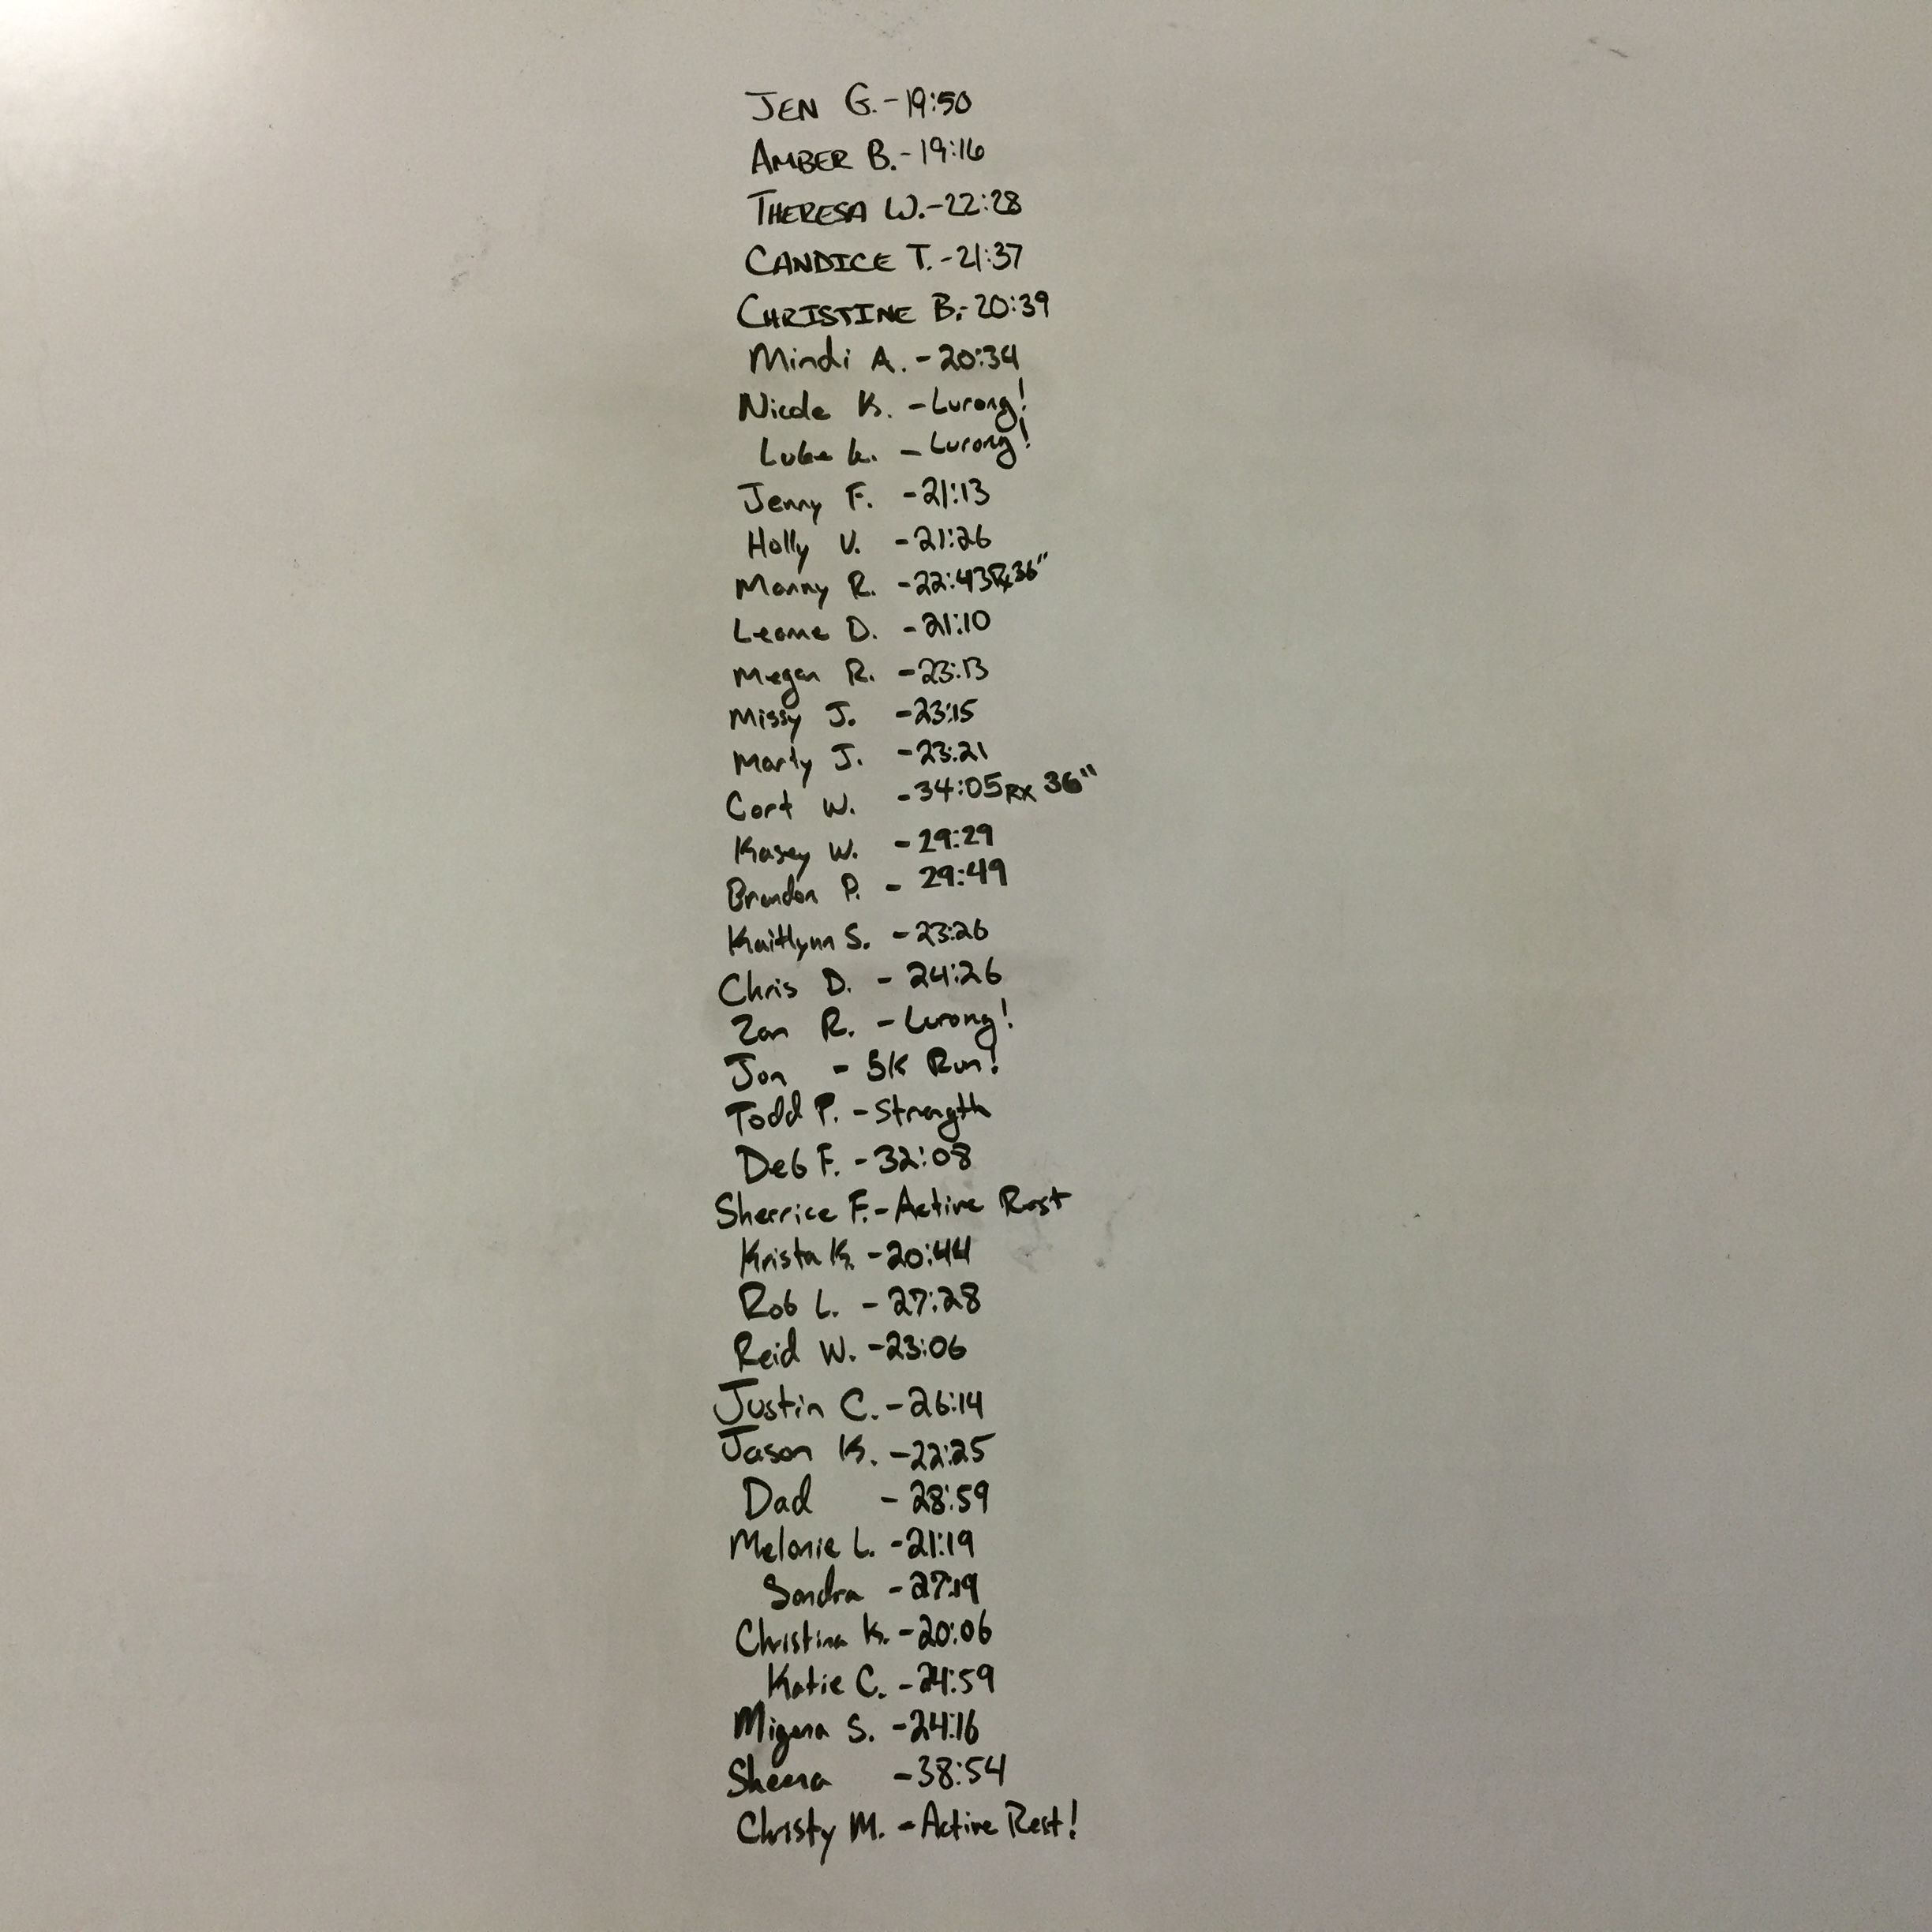 JEN G. - 19:50
AMBER B. - 19:16
THERESA W. - 22:28
CANDICE T. - 21:37
CHRISTINE B. - 20:39
Mindi A. - 20:34
Nicole K. - Lurong!
Luke K. - Lurong!
Jenny F. - 21:13
Holly V. - 21:26
Manny R. - 22:43 Rx 36"
Leanne D. - 21:10
Megan R. - 23:13
Missy J. - 23:15
Marty J. - 23:21
Cort W. - 34:05 RX 36"
Kasey W. - 29:29
Brandon P. - 29:49
Kaitlynn S. - 23:26
Chris D. - 24:26
Zan R. - Lurong!
Jon - 5K Run!
Todd P. - Strength
Deb F. - 32:08
Sherrice F. - Active Rest
Krista K. - 20:44
Rob L. - 27:28
Reid W. - 23:06
Justin C. - 26:14
Jason K. - 22:25
Dad - 28:59
Melanie L. - 21:19
Sandra - 27:19
Christina K. - 20:06
Katie C. - 24:59
Migena S. - 24:16
Sheena - 38:54
Christy M. - Active Rest!